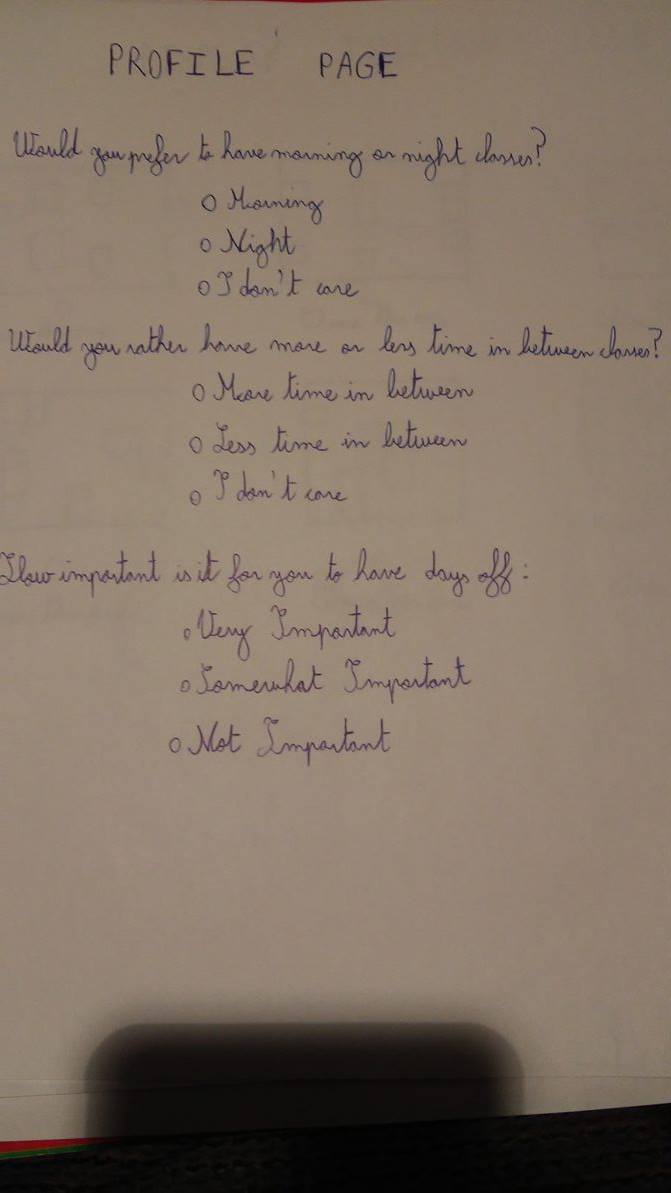 PROFILE PAGE
Would you prefer to have morning or night classes?
o Morning
o Night
o I don't care
Would you rather have more or less time in between classes?
o More time in between
o Less time in between
o I don't care
How important is it for you to have days off:
o Very Important
o Somewhat Important
o Not Important